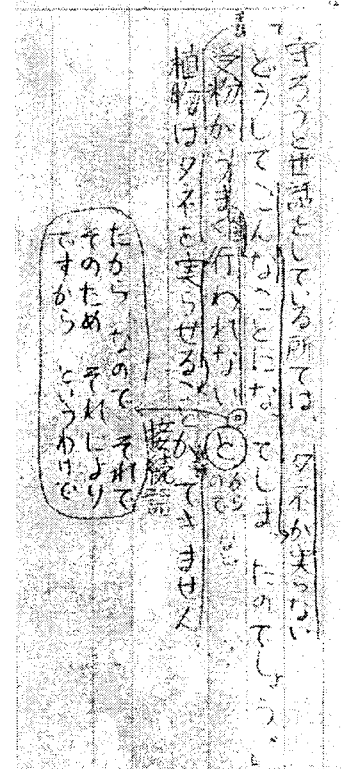 守ろうと世話をしている所では、タネが実らない
どうして、こんなことになってしまったのでしょう。
受粉がうまく行われないと
から
ので
植物はタネを実らせることができません
接続語
だから なので それで
そのため それにより
ですから というわけで